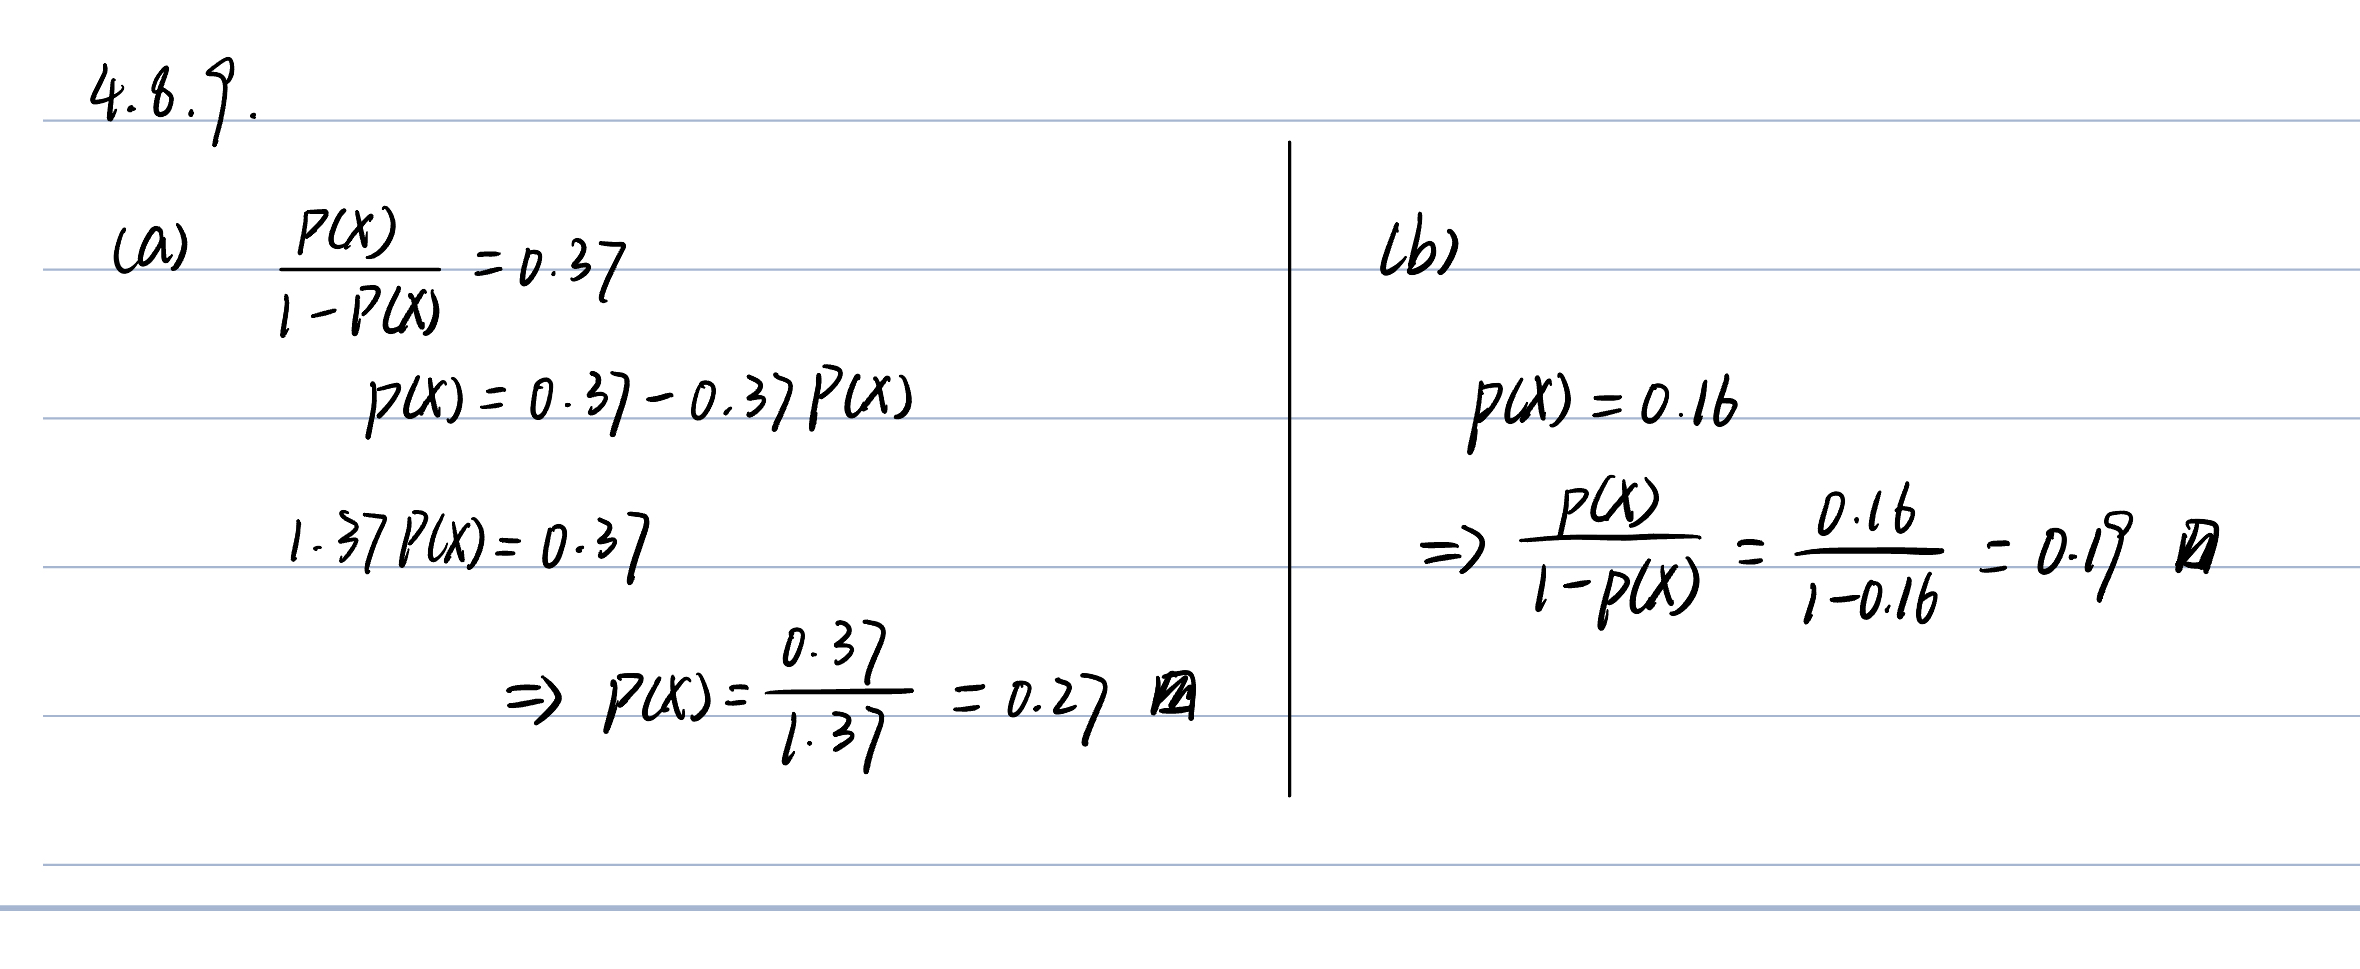 4.8.9.
(a) P(X) / (1 - P(X)) = 0.37
P(X) = 0.37 - 0.37 P(X)
1.37 P(X) = 0.37
⇒ P(X) = 0.37 / 1.37 = 0.27
(b)
P(X) = 0.16
⇒ P(X) / (1 - P(X)) = 0.16 / (1 - 0.16) = 0.19